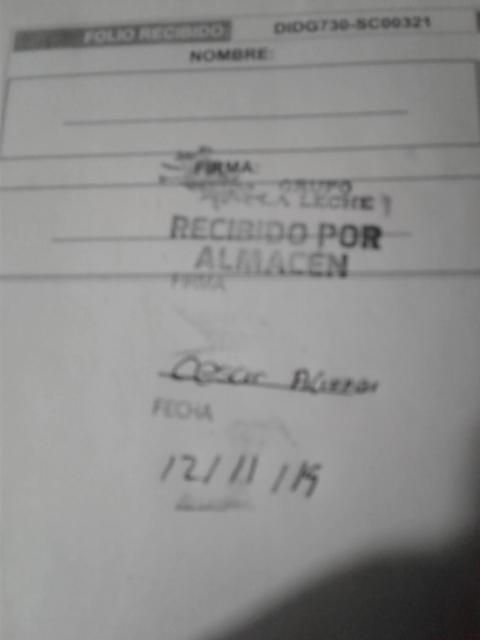 FOLIO RECIBIDO DIDG730-SC00321
NOMBRE:
FIRMA:
GRUPO
LECHE
RECIBIDO POR
ALMACÉN
FIRMA
FECHA
12/11/19